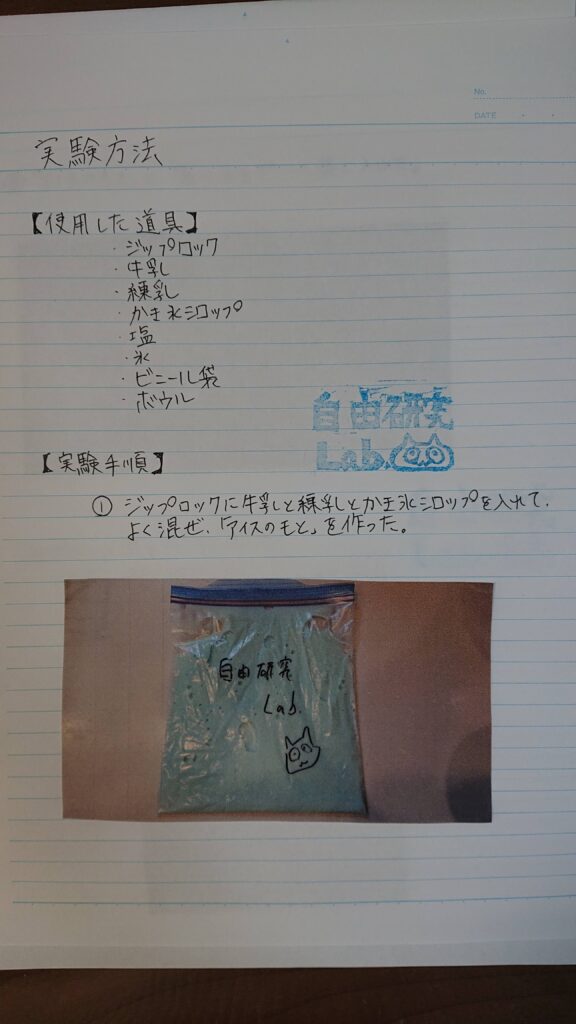 No.
DATE
実験方法
【使用した道具】
・ジップロック
・牛乳
・練乳
・かき氷シロップ
・塩
・氷
・ビニール袋
・ボウル
自由研究
Lab.
【実験手順】
① ジップロックに牛乳と練乳とかき氷シロップを入れて、
よく混ぜ、「アイスのもと」を作った。
自由研究
Lab.